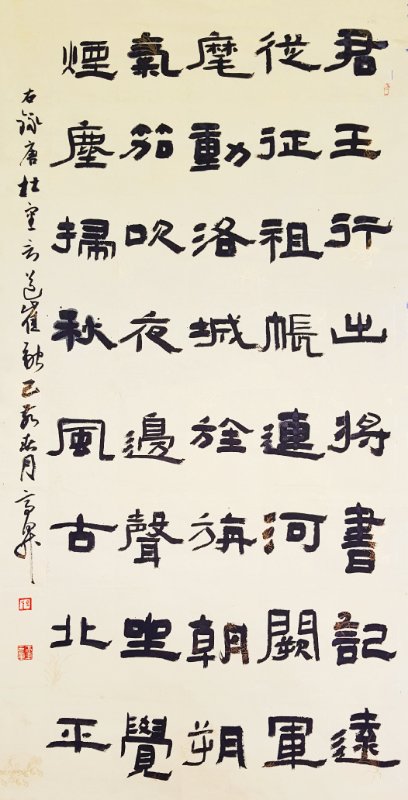 君王行出将書記遠
從征祖帳連河闕軍
麾動洛城旌旃朝朔
氣笳吹夜邊聲坐覺
煙塵掃秋風古北平
右錄唐杜審言送崔融己亥春月